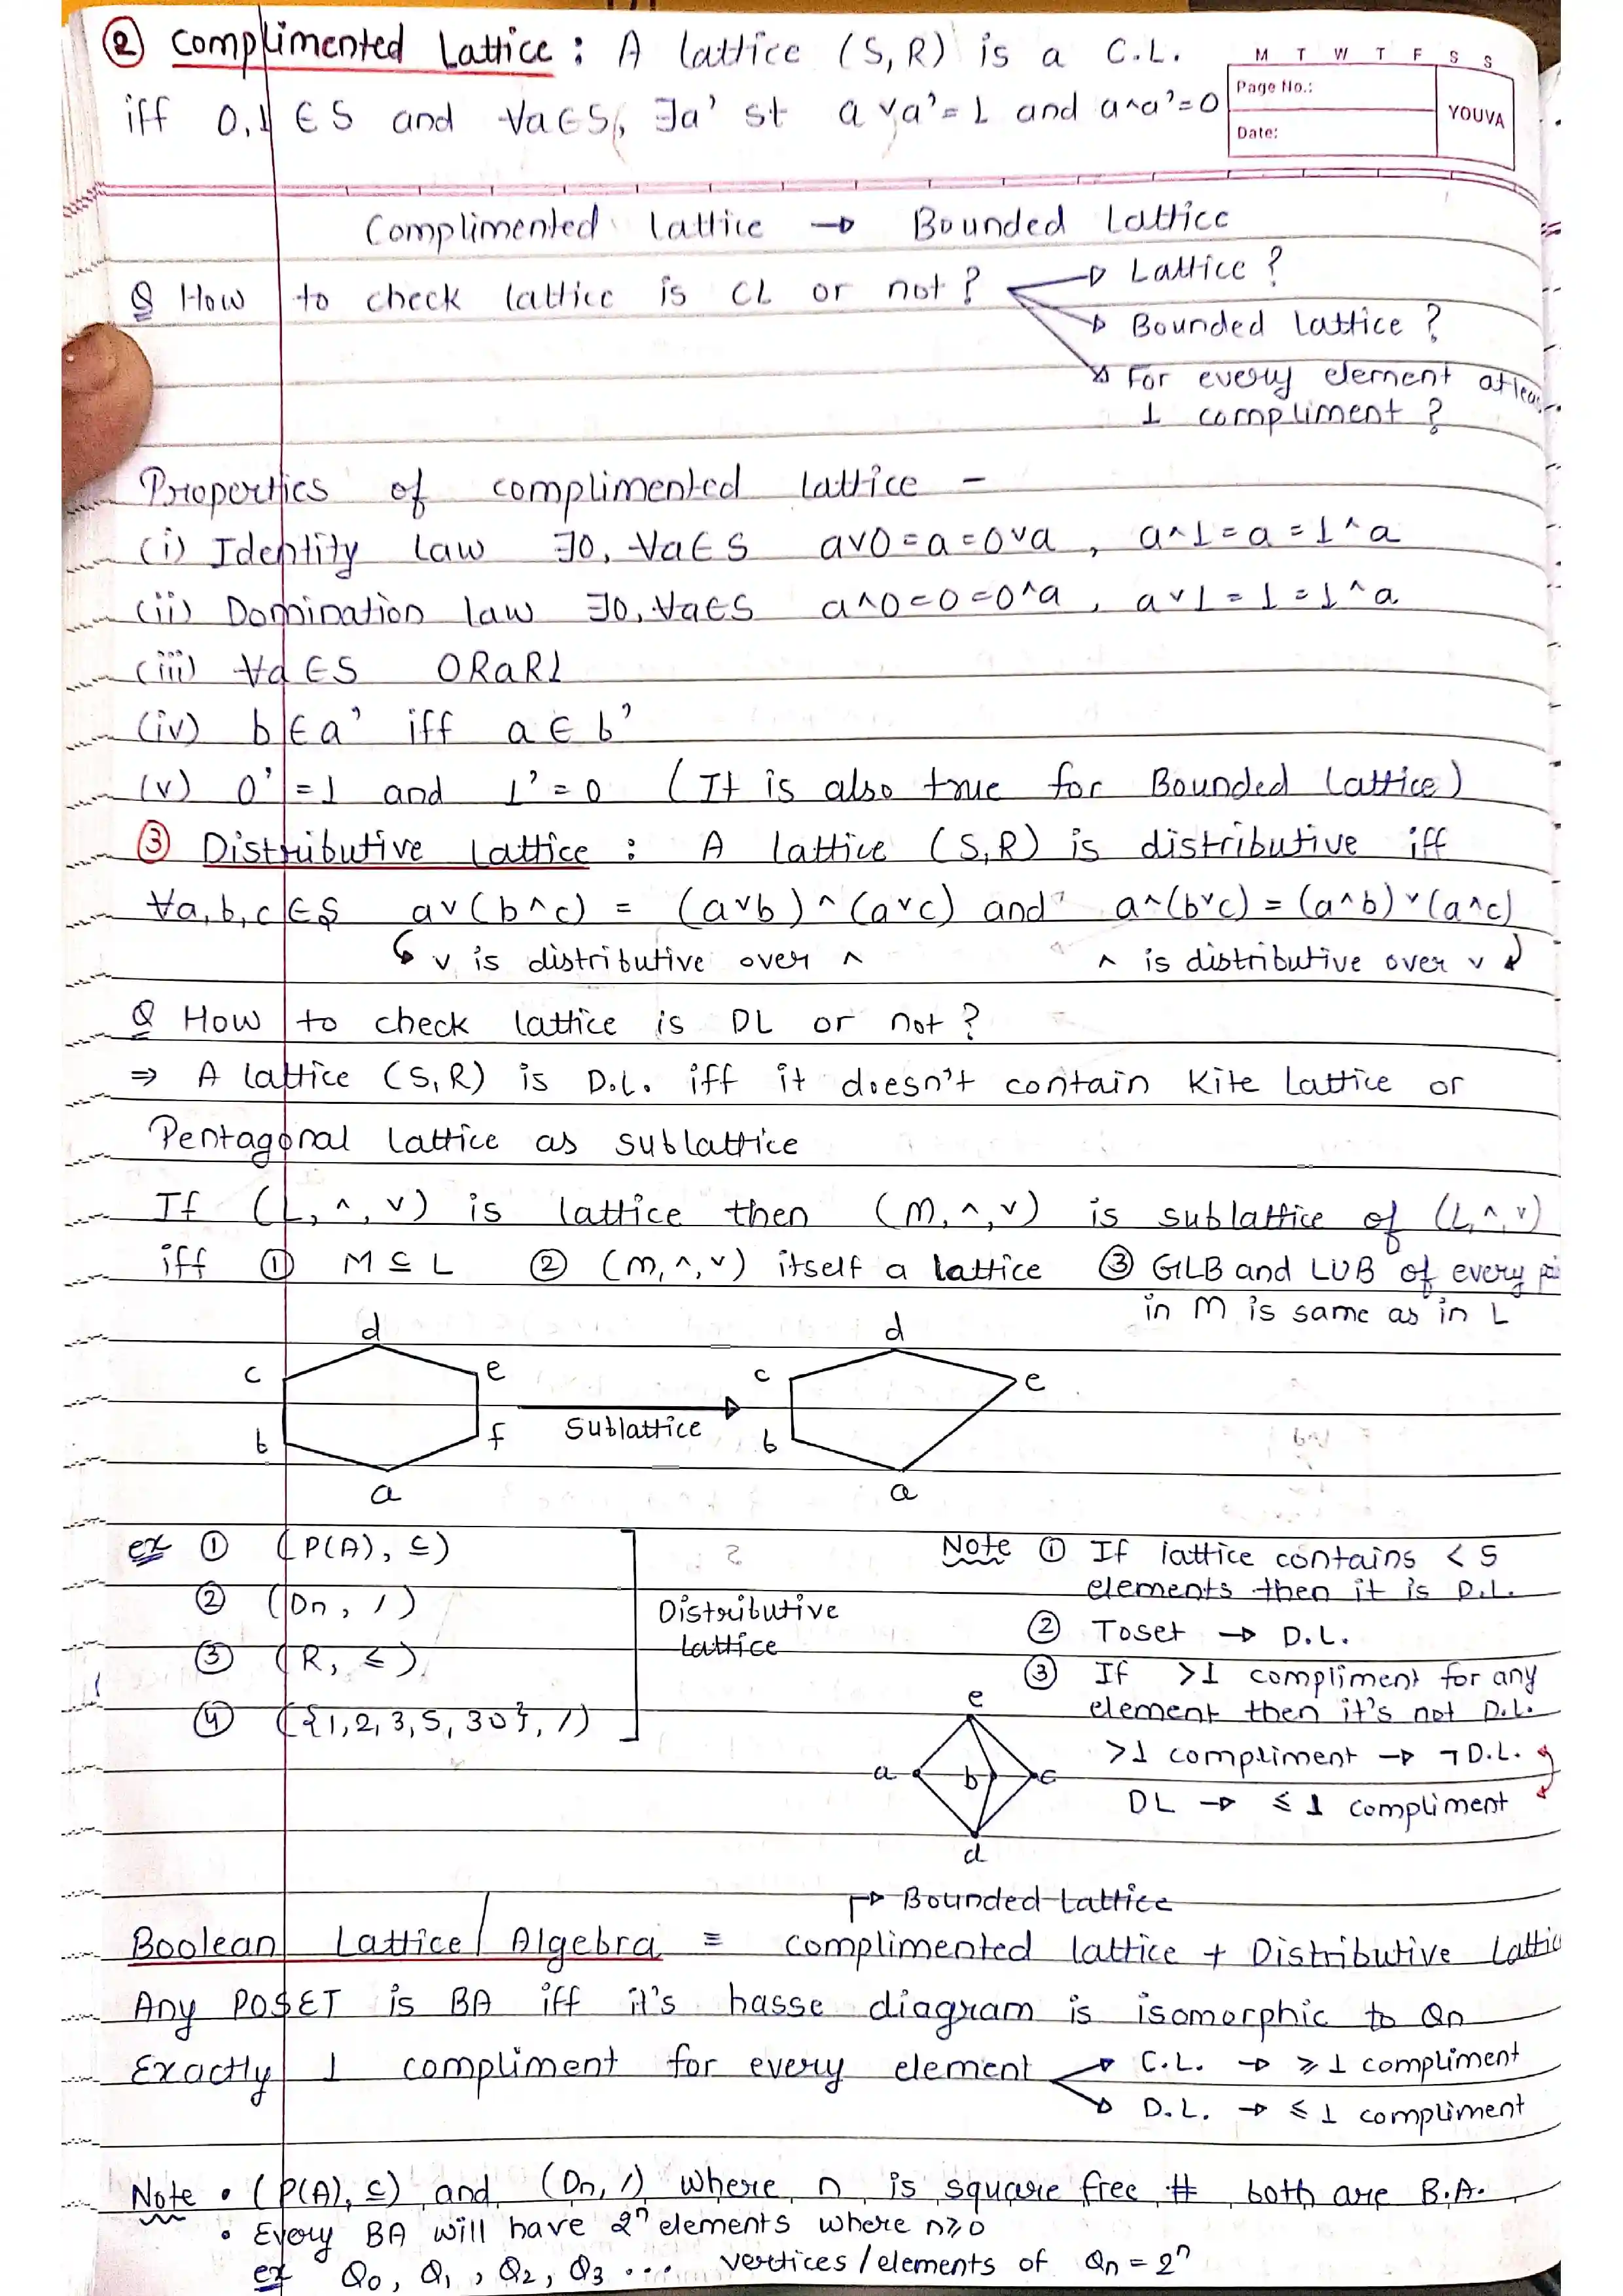 ② Complimented Lattice : A lattice (S, R) is a C.L.
iff 0,1 ∈ S and ∀a∈S, ∃a' st a ∨ a' = 1 and a ∧ a' = 0
M T W T F S S
Page No.:
Date:
YOUVA
Complimented lattice → Bounded Lattice
Q How to check lattice is CL or not ? → Lattice ?
→ Bounded Lattice ?
→ For every element atleas
1 compliment ?
Properties of complimented lattice –
(i) Identity law ∃0, ∀a∈S a∨0=a=0∨a , a∧1=a=1∧a
(ii) Domination law ∃0, ∀a∈S a∧0=0=0∧a , a∨1=1=1∧a
(iii) ∀a ∈S 0RaR1
(iv) b ∈ a' iff a ∈ b'
(v) 0' = 1 and 1' = 0 (It is also true for Bounded Lattice)
③ Distributive Lattice : A lattice (S,R) is distributive iff
∀a,b,c ∈S a∨(b∧c) = (a∨b)∧(a∨c) and a∧(b∨c) = (a∧b)∨(a∧c)
↳ ∨ is distributive over ∧ ∧ is distributive over ∨
Q How to check lattice is DL or not ?
⇒ A lattice (S,R) is D.L. iff it doesn't contain Kite Lattice or
Pentagonal lattice as sublattice
If (L, ∧, ∨) is lattice then (M, ∧, ∨) is sublattice of (L, ∧, ∨)
iff ① M ⊆ L ② (M, ∧, ∨) itself a lattice ③ GLB and LUB of every
in M is same as in L
d
c e
b f
a
Sublattice
d
c e
b
a
ex ① (P(A), ⊆)
② (Dn, /)
③ (R, ≤)
④ ({1,2,3,5,30}, /)
Distributive
Lattice
Note ① If lattice contains < 5
elements then it is D.L.
② Toset → D.L.
③ If >1 compliment for any
element then it's not D.L.
>1 compliment → ¬ D.L.
DL → ≤ 1 compliment
e
a b c
d
→ Bounded Lattice
Boolean Lattice / Algebra ≡ complimented lattice + Distributive Lattic
Any POSET is BA iff it's hasse diagram is isomorphic to Qn
Exactly 1 compliment for every element → C.L. → ≥ 1 compliment
→ D.L. → ≤ 1 compliment
Note • (P(A), ⊆) and (Dn, /) where n is square free # both are B.A.
• Every BA will have 2ⁿ elements where n≥0
ex Q0, Q1, Q2, Q3 ... vertices / elements of Qn = 2ⁿ